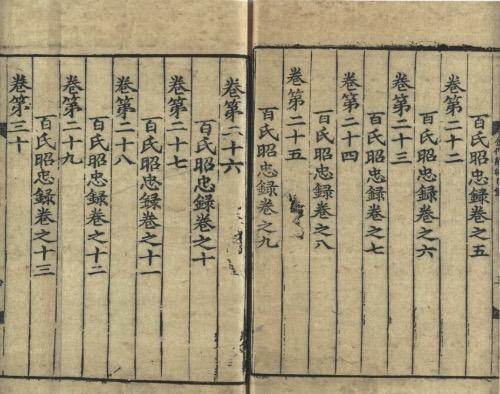 百氏昭忠録卷之五
卷第二十二
百氏昭忠録卷之六
卷第二十三
百氏昭忠録卷之七
卷第二十四
百氏昭忠録卷之八
卷第二十五
百氏昭忠録卷之九
卷第二十六
百氏昭忠録卷之十
卷第二十七
百氏昭忠録卷之十一
卷第二十八
百氏昭忠録卷之十二
卷第二十九
百氏昭忠録卷之十三
卷第三十